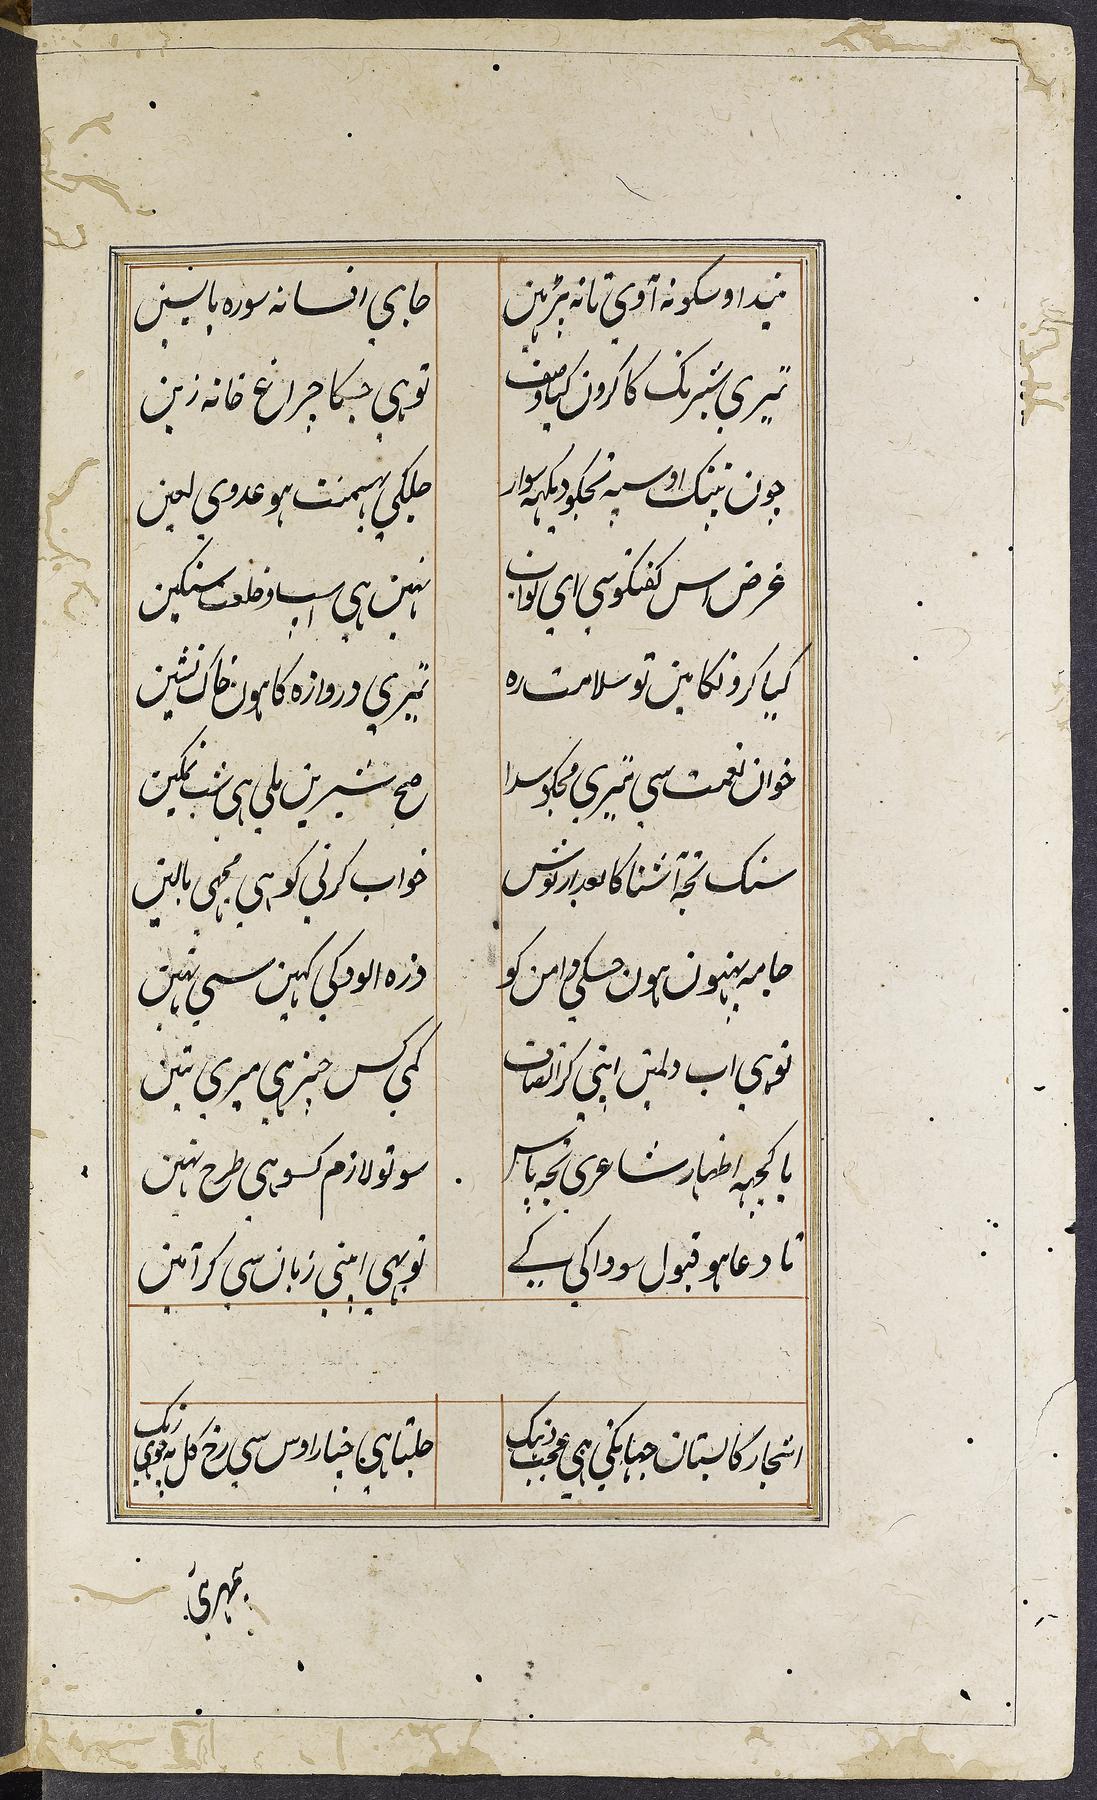 نیند اوسکو نه آوی تا نه پڑہین
جای افسانه سوره یاسین
تیری شبرنگ کا کرون کیا وصف
توہی جسکا چراغ خانه زین
جون تپنک اوسپه تجکو دیکهه سوار
جلکی بهیمنت ہو عدوی لعین
غرض اس کفتکو سی ای نواب
نہین ہی اسپ و خلعت سنکین
کیا کرونکا مین تو سلامت ره
تیری دروازه کا ہون خاک نشین
خوان نعمت سی تیری مجکو سدا
صبح شیرین ملی ہی شب نمکین
سنک تجه آشنا کا بعد از توش
خواب کرنی کو ہی مجہی بالین
جامه پہنون ہون جسکی دامن کو
ذره الودکی کہین سی نہین
توہی اب دلمین اپنی کر انصاف
کمی کس چیز ہی میری تئین
یا کچهه اظهار شاعری تجه پاس
سو تو لازم کسو ہی طرح نہین
تا دعا ہو قبول سودا کی کے
توبہی اپنی زبان سی کر آمین
اشجار کلستان جہانکی ہی عجب رنک
جلتا ہی خیار اوس سی رخ کل په جوی رنک